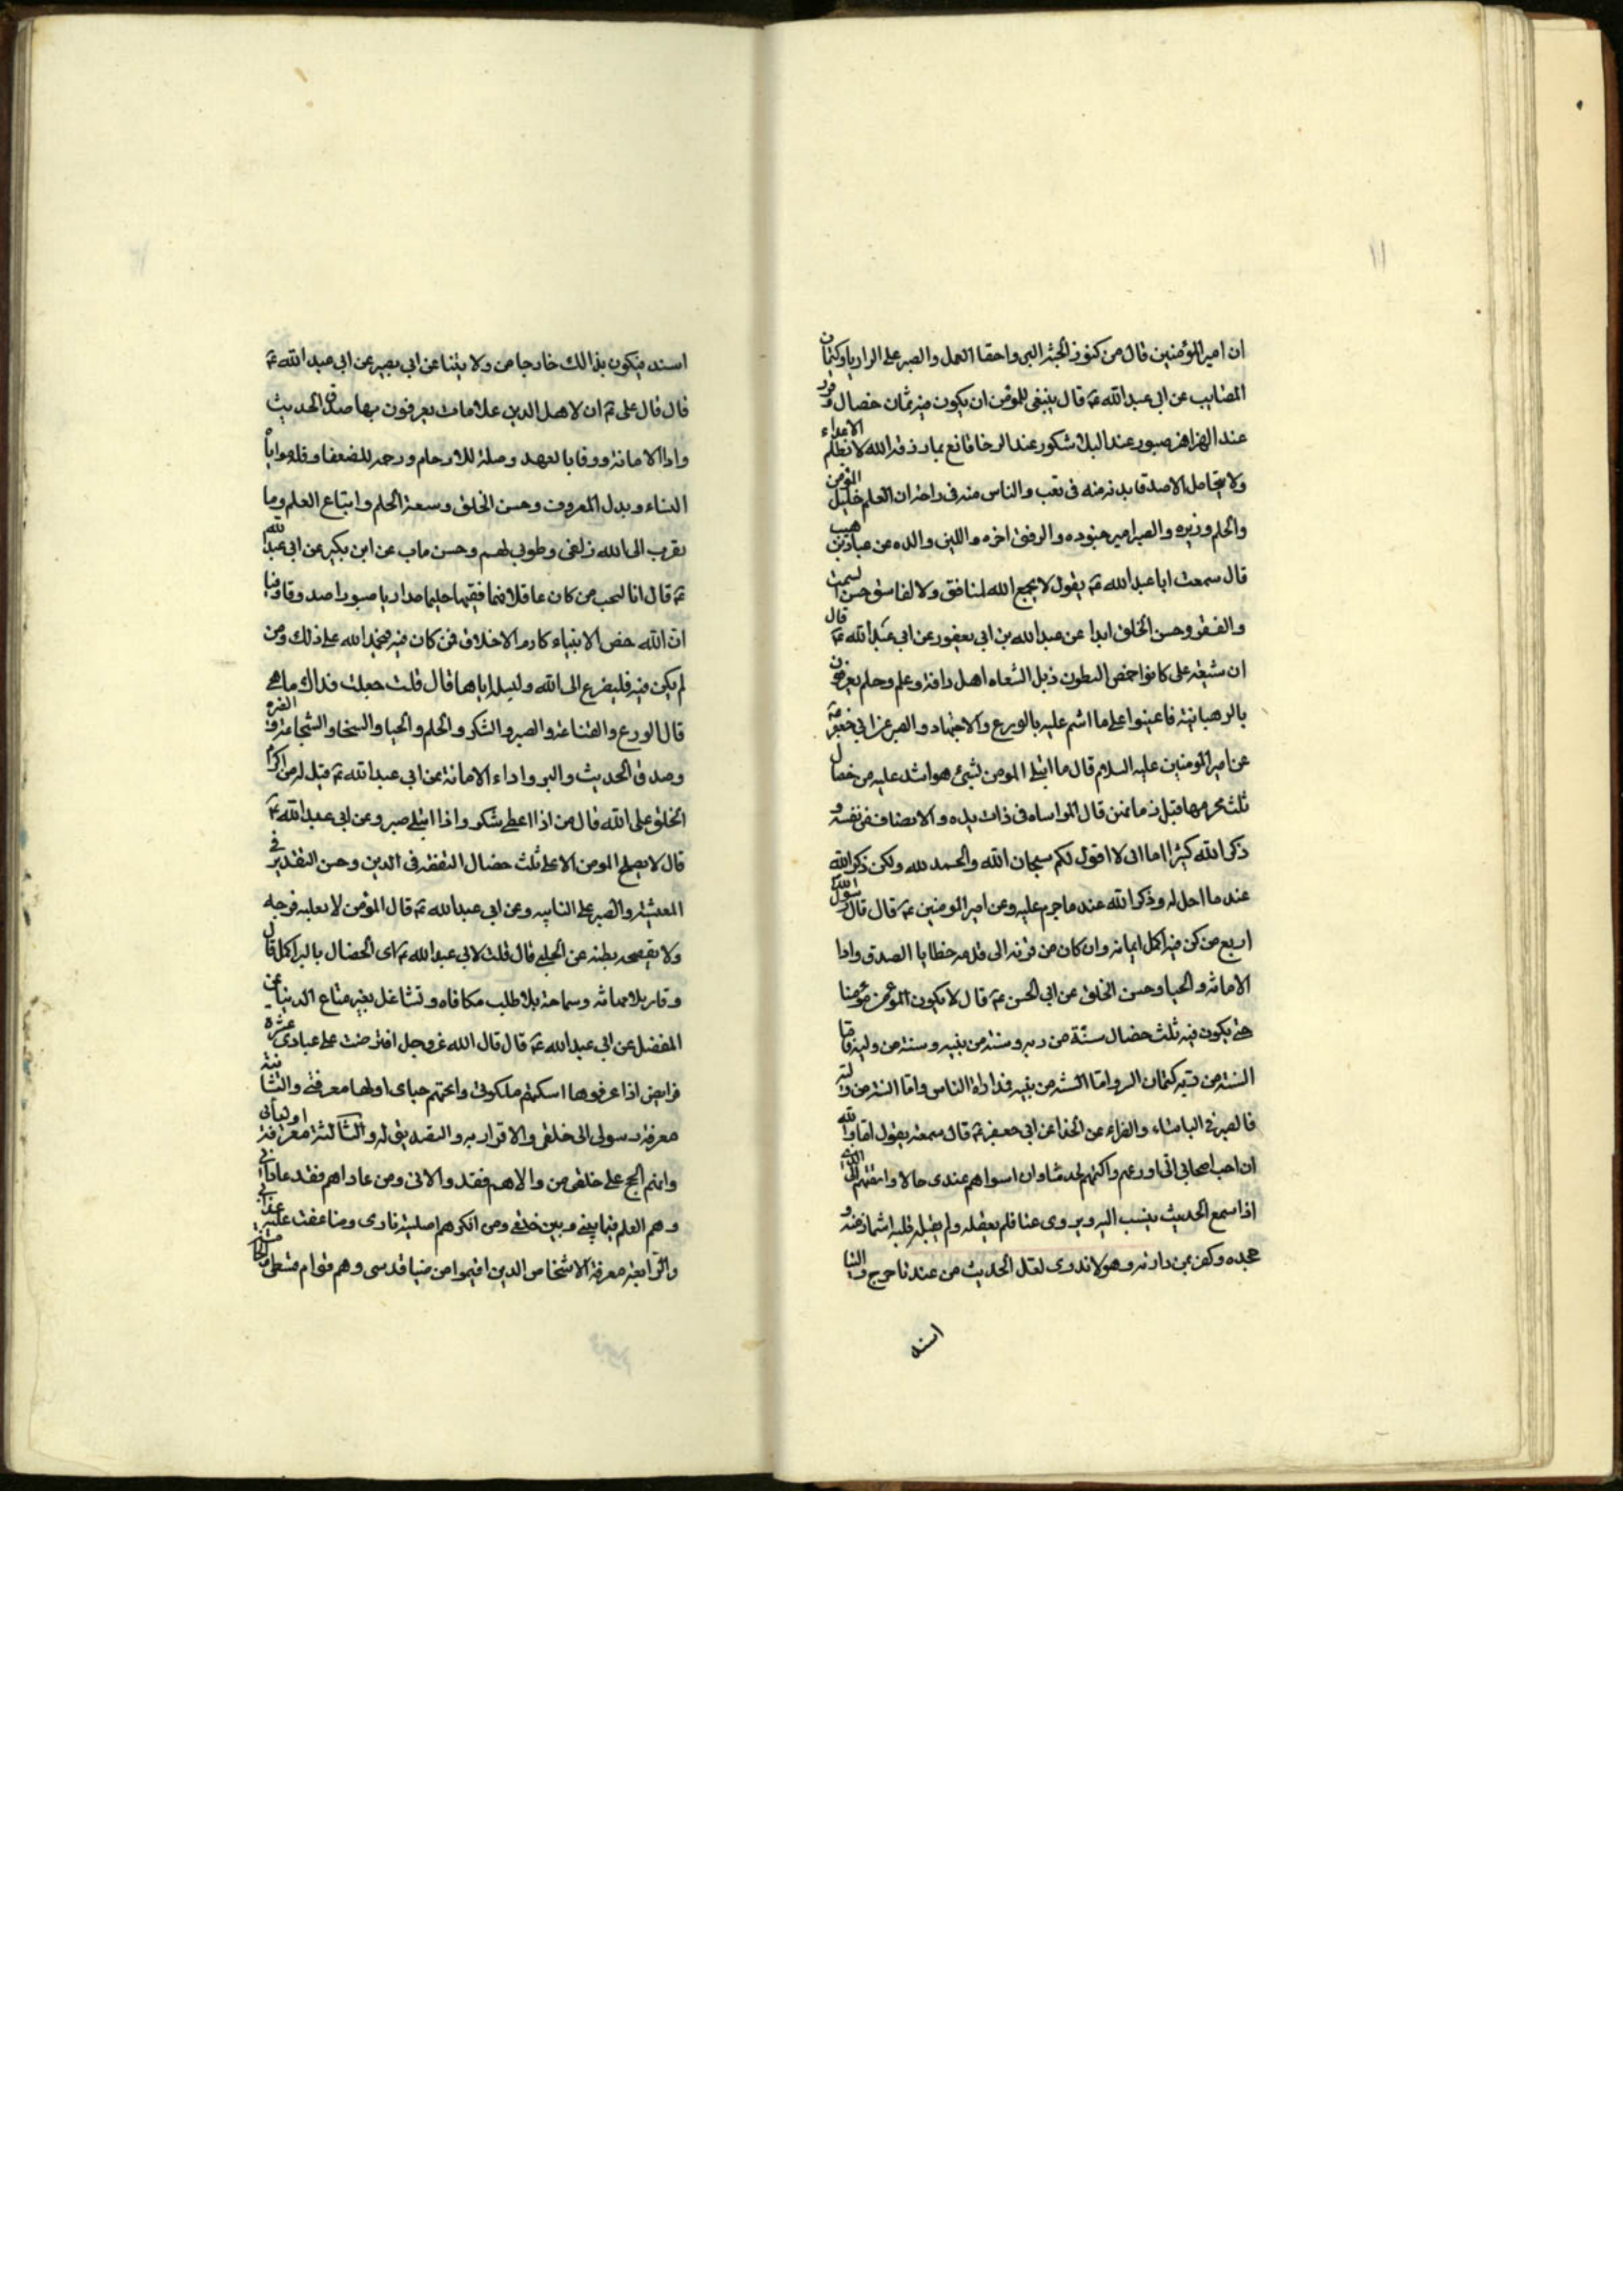 ١١
ان امير المؤمنين قال من كنوز الجنة البر واخفا العمل والصبر على الرزايا وكتمان
المصايب عن ابى عبد الله ع قال ينبغى للمؤمن ان يكون فيه ثمان خصال وقور
عند الهزاهز صبور عند البلا شكور عند الرخا قانع بما رزقه الله لا يظلم الاعداء
ولا يتحامل الاصدقا بدنه منه فى تعب والناس منه فى راحة ان العلم خليل المؤمن
والحلم وزيره والصبر امير جنوده والرفق اخوه واللين والده عن عباد بن صهيب
قال سمعت ابا عبد الله ع يقول لا يجمع الله لمنافق ولا لفاسق حسن السمت
والفقه وحسن الخلق ابدا عن عبد الله بن ابى يعفور عن ابى عبد الله ع قال
ان شيعة على كانوا خمص البطون ذبل الشفاه اهل رافة وعلم وحلم يعرفون
بالرهبانية فاعينوا على ما انتم عليه بالورع والاجتهاد والصبر عن ابى جعفر ع
عن امير المومنين عليه السلام قال ما ابتلى المومن بشئ هو اشد عليه من خصال
ثلث يحرمها قيل و ما هن قال المواساه فى ذات يده والانصاف من نفسه و
ذكر الله كثيرا اما انى لا اقول لكم سبحان الله والحمد لله ولكن ذكر الله
عند ما احل له وذكر الله عند ما حرم عليه وعن امير المومنين ع قال قال رسول الله
اربع من كن فيه اكمل ايمانه وان كان من قرنه الى قدمه خطايا الصدق وادا
الامانة والحيا وحسن الخلق عن ابى الحسن ع قال لا يكون المؤمن مؤمنا
حتى يكون فيه ثلث خصال سنة من ربه وسنة من نبيه وسنة من وليه فاما
السنة من ربه كتمان السر واما السنة من نبيه فمداراة الناس واما السنة من وليه
فالصبر فى الباساء والضراء عن الحذا عن ابى جعفر ع قال سمعته يقول اما والله
ان احب اصحابى الى اورعهم واكتمهم لحديثنا وان اسواهم عندى حالا وامقتهم الى الذى
اذا سمع الحديث ينسب الينا ويروى عنا فلم يعقله ولم يقبله قلبه اشماز منه و
جحده وكفر بمن دان به وهو لا يدرى لعل الحديث من عندنا خرج والينا
اسند
اسند فيكون بذالك خارجا من ولايتنا عن ابى بصير عن ابى عبد الله ع
قال قال على ع ان لاهل الدين علامات يعرفون بها صدق الحديث
وادا الامانة ووفا بالعهد وصلة للارحام ورحمه للضعفا وقلة مواتاة
النساء وبذل المعروف وحسن الخلق وسعة الحلم واتباع العلم وما
يقرب الى الله زلفى وطوبى لهم وحسن ماب عن ابن بكير عن ابى عبد الله
ع قال انا لنحب من كان عاقلا فهما فقيها حليما مداريا صبورا صدوقا وفيا
ان الله خص الانبياء بمكارم الاخلاق فمن كان فيه فليحمد الله على ذلك ومن
لم يكن فيه فليضرع الى الله وليسله اياها قال قلت جعلت فداك ما هى
قال الورع والقناعة والصبر والشكر والحلم والحيا والسخا والشجاعة والغيرة
وصدق الحديث والبر واداء الامانة عن ابى عبد الله ع قيل له من اكرم
الخلق على الله قال من اذا اعطى شكر واذا ابتلى صبر وعن ابى عبد الله ع
قال لا يصلح المومن الا على ثلث خصال التفقه فى الدين وحسن التقدير فى
المعيشة والصبر على النايبه وعن ابى عبد الله ع قال المؤمن لا يغلبه فرجه
ولا يفضحه بطنه عن الحلبى قال قلت لابى عبد الله ع اى الخصال بالمرا اكمل قال
وقار بلا مهابة وسماحة بلا طلب مكافاه وتشاغل بغير متاع الدنيا عن
المفضل عن ابى عبد الله ع قال قال الله عز وجل افترضت على عبادى عشرة
فرايض اذا عرفوها اسكنتهم ملكوتى وابحتهم جنانى اولها معرفتى والثانية
معرفة رسولى الى خلقى والاقرار به والتصديق له والثالثة معرفة اوليائى
وانهم الحجج على خلقى من والاهم فقد والانى ومن عاداهم فقد عادانى
وهم العلم فيما بينى وبين خلقى ومن انكرهم اصليته نارى وضاعفت عليه عذابى
والرابعة معرفة الاشخاص الذين اقيموا من ضيا قدسى وهم قوام قسطى والخامسة